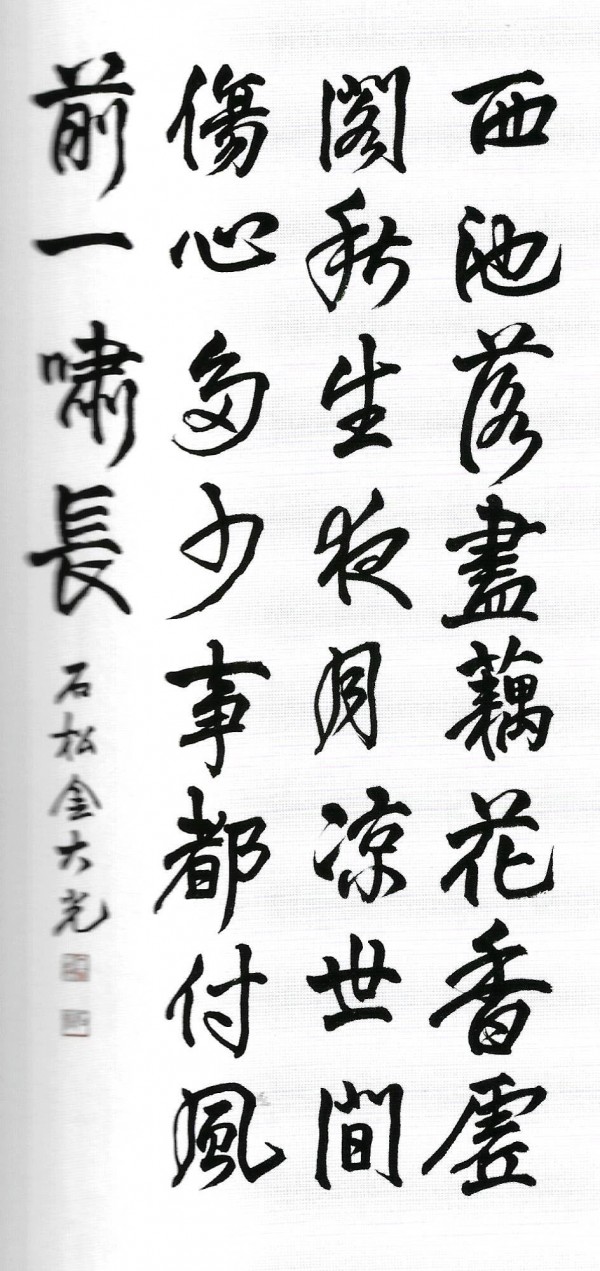 西池落盡藕花香虛
閣秋生夜月凉世間
傷心多少事都付風
前一嘯長
石松金大光